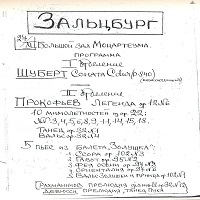 ЗАЛЬЦБУРГ
24/XI Большой зал Моцартеума.
ПРОГРАММА
I отделение
ШУБЕРТ Соната C dur (р.840)
(неоконченная)
II отделение
ПРОКОФЬЕВ Легенда ор.12 №6
10 мимолетностей из ор.22:
№ 3,4,5,6,8,9,11,14,15,18.
Танец ор.32 №1
Вальс ор.32 №4
5 пьес из балета „Золушка":
1. Ссора ор.102 №3
2. Гавот ор.95 №2
3. Фея осени ор.97 №3
4. Ориенталия ор.97 №6
5. Вальс Золушка и принца ор.102 №1
РАХМАНИНОВ прелюдия gis moll ор.32 №12
ДЕБЮССИ прелюдия